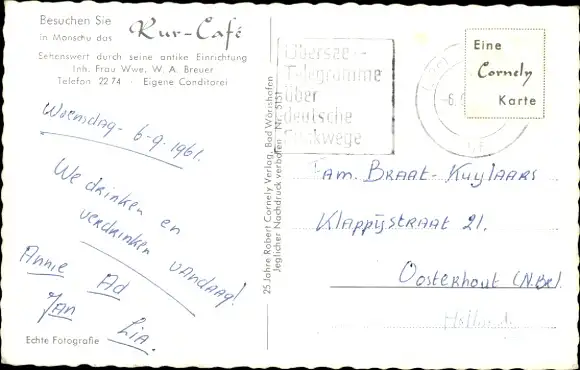 Besuchen Sie
in Monschau das Kur-Café
Sehenswert durch seine antike Einrichtung
Inh. Frau Wwe. W. A. Breuer
Telefon 2274 · Eigene Conditorei
Woensdag - 6-9-1961.
We drinken en
verdrinken vandaag!
Annie Ad
Jan Lia.
Echte Fotografie
25 Jahre Robert Cornely Verlag, Bad Wörishofen
Jeglicher Nachdruck verboten Nr. 5151
Übersee-
Telegramme
über
deutsche
Funkwege
Eine
Cornely
Karte
Fam. Braat-Kuylaars
Klappijstraat 21.
Oosterhout (N.Br).
Holland